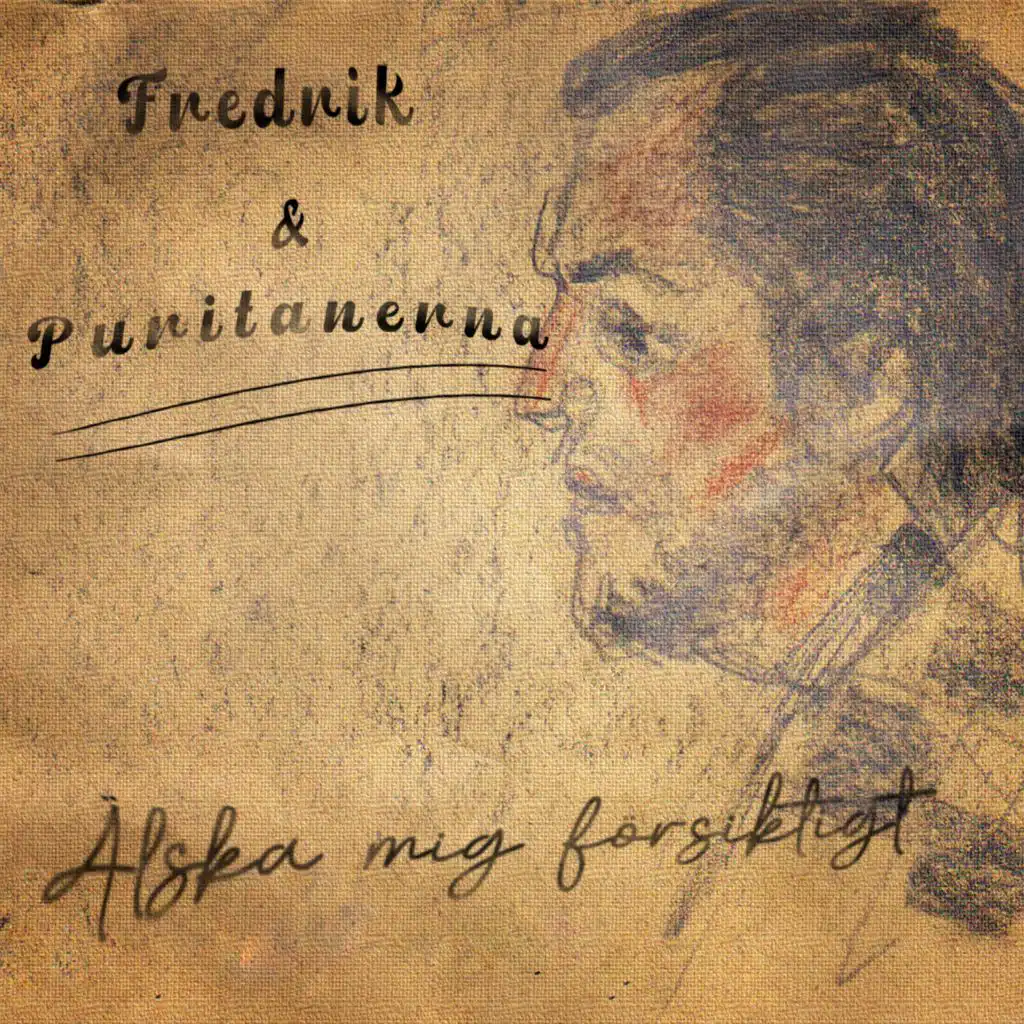 Fredrik
&
Puritanerna
Älska mig försiktigt